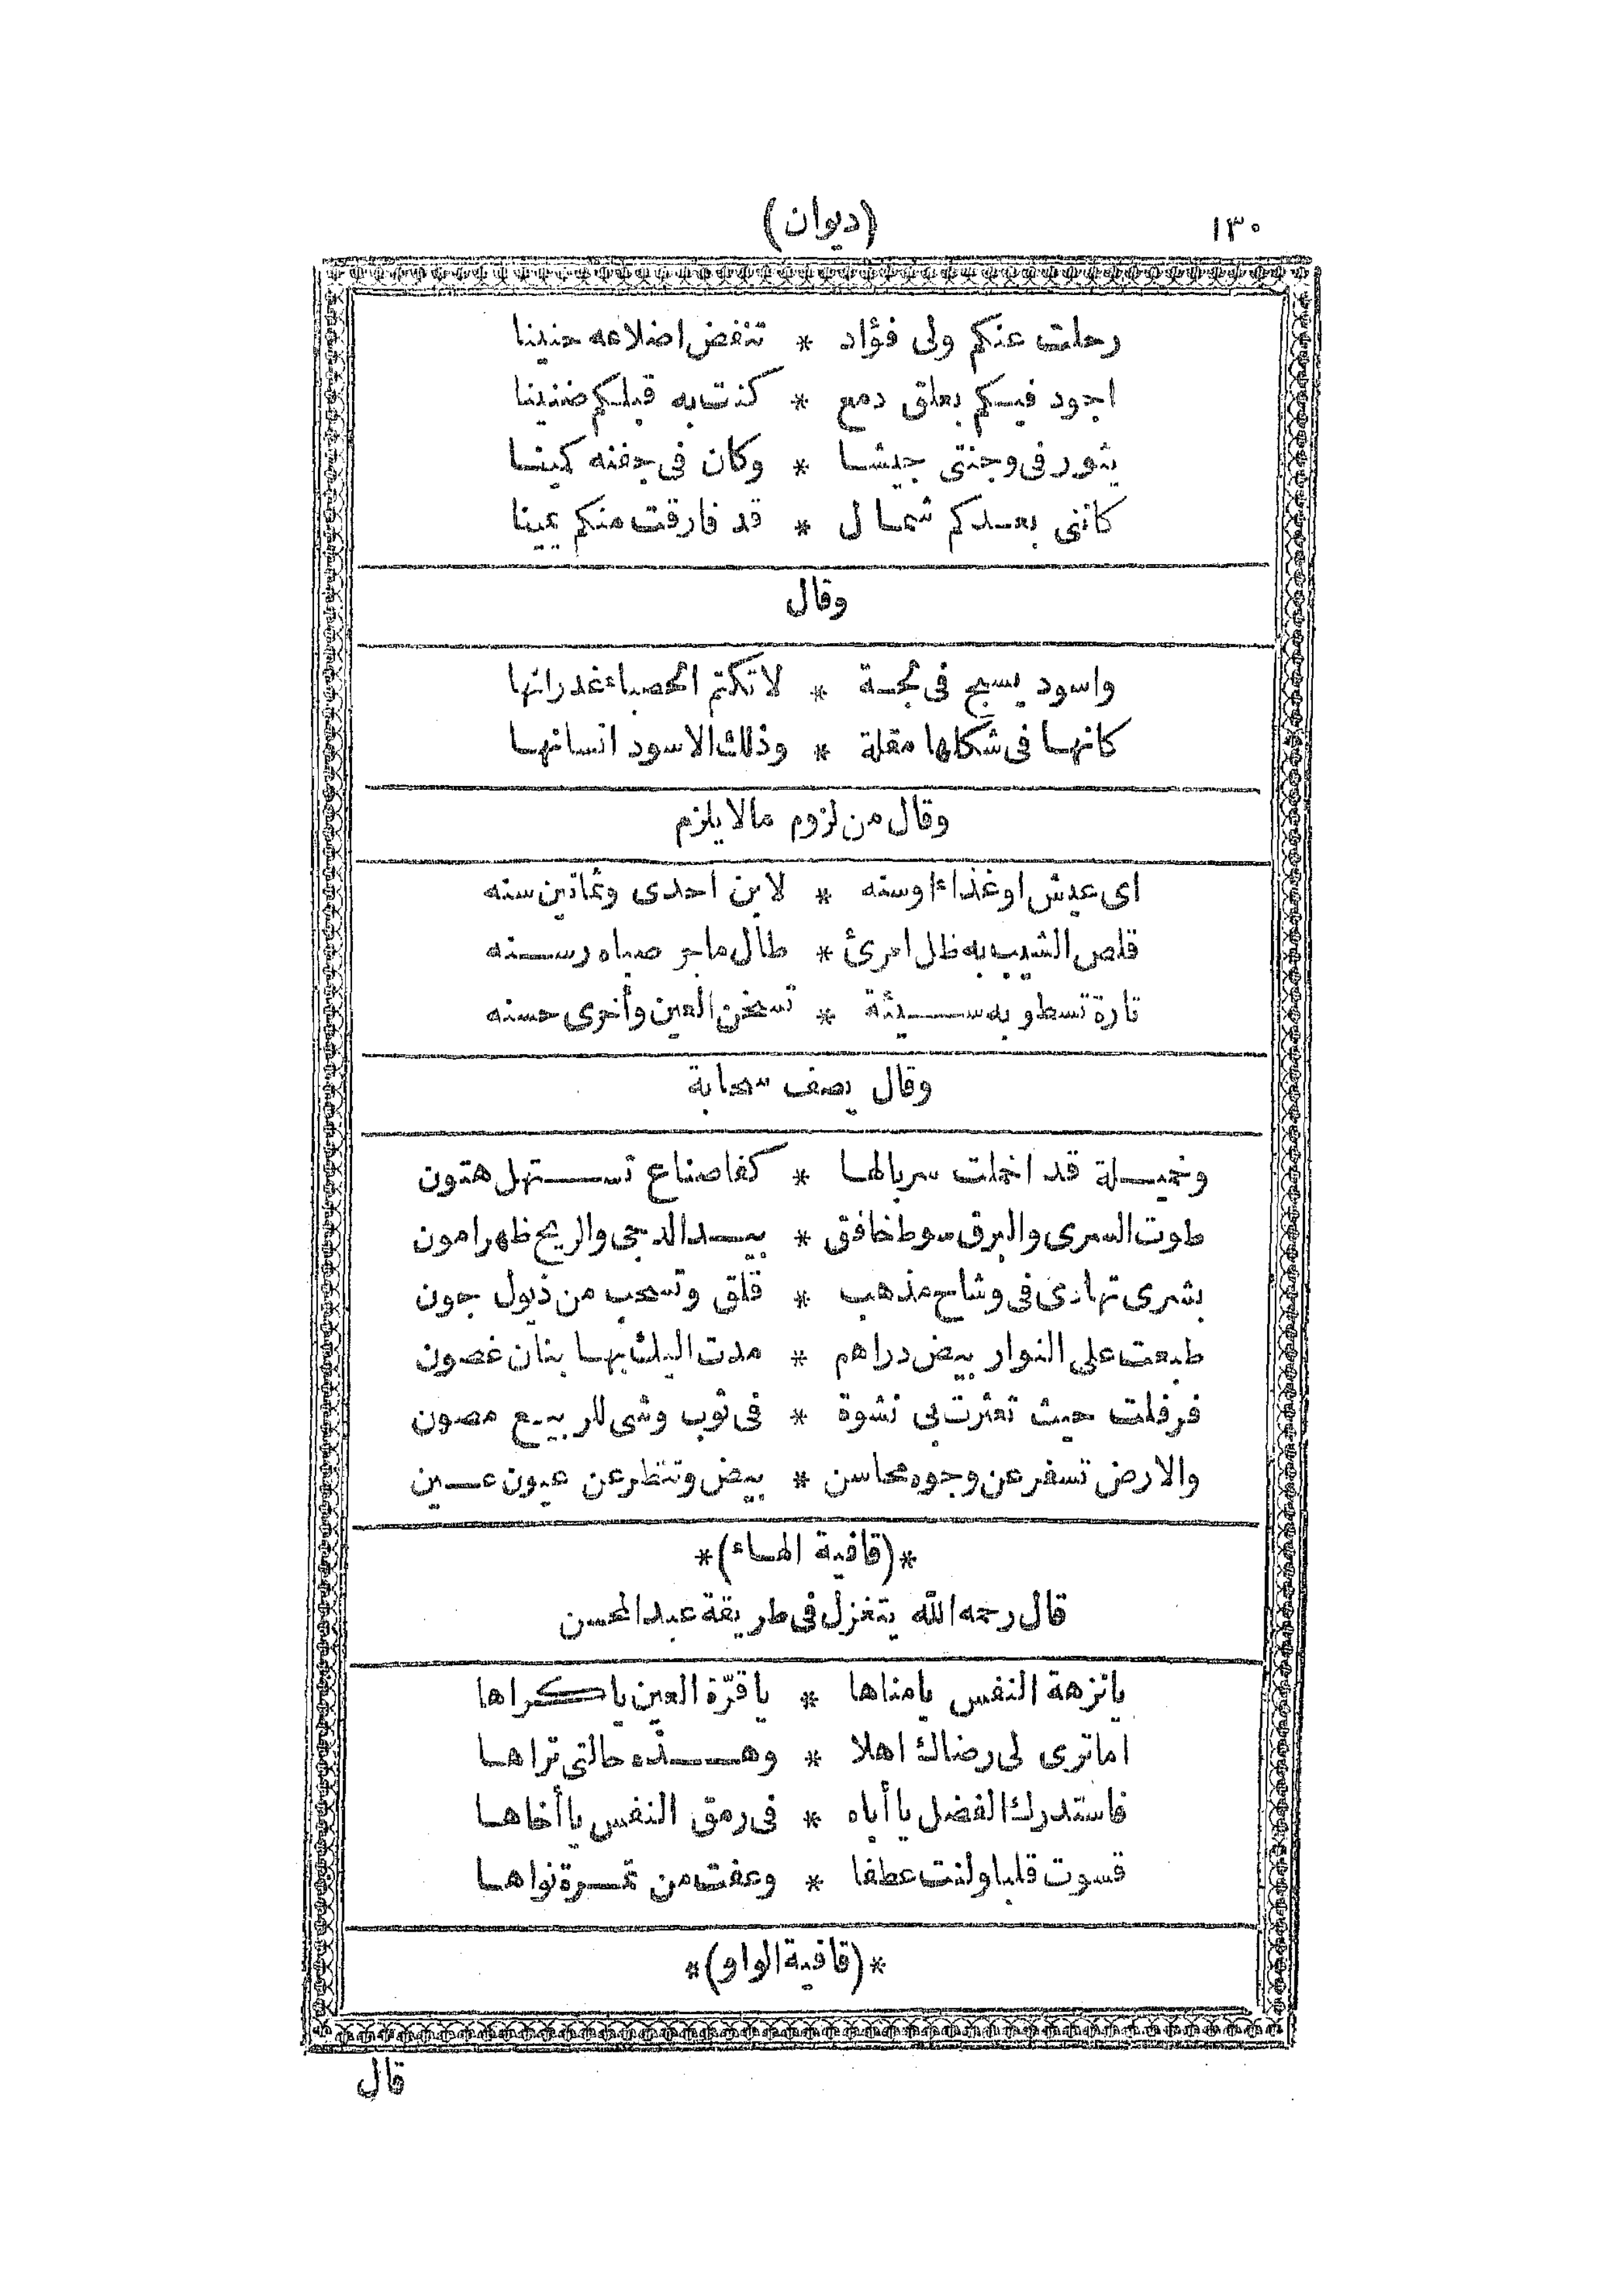 ١٣٠
(ديوان)
رحلت عنكم ولى فؤاد * تنفض اضلاعه حنينا
اجود فيكم بعلق دمع * كنت به قبلكم ضنينا
يثور فى وجنتى جيشا * وكان فى جفنه كمينا
كاننى بعدكم شمال * قد فارقت منكم يمينا
وقال
واسود يسبح فى لجة * لا تكتم الحصباء غدرانها
كانها فى شكلها مقلة * وذلك الاسود انسانها
وقال من لزوم مالا يلزم
اى عيش او غذاء او سنه * لابن احدى وثمانين سنه
قلص الشيب به ظل امرئ * طال ماجر صباه رسنه
تارة تسطو به سيئة * تسخن العين وأخرى حسنه
وقال يصف سحابة
وخميلة قد اخملت سربالها * كفا صناع تستهل هتون
طوت السرى والبرق سوط خافق * بيد الدجى والريح ظهر امون
بشرى تهادى فى وشاح مذهب * قلق وتسحب من ذيول جون
طبعت على النوار بيض دراهم * مدت اليك بها بنان غصون
فرفلت حيث تعثرت بى نشوة * فى ثوب وشى للربيع مصون
والارض تسفر عن وجوه محاسن * بيض وتنظر عن عيون عين
*(قافية الهاء)*
قال رحمه الله يتغزل فى طريقة عبد المحسن
يا نزهة النفس يا مناها * يا قرّة العين يا كراها
اما ترى لى رضاك اهلا * وهذه حالتى تراها
فاستدرك الفضل يا أباه * فى رمق النفس يا أخاها
قسوت قلبا ولنت عطفا * وعفت من تمرة نواها
*(قافية الواو)*
قال